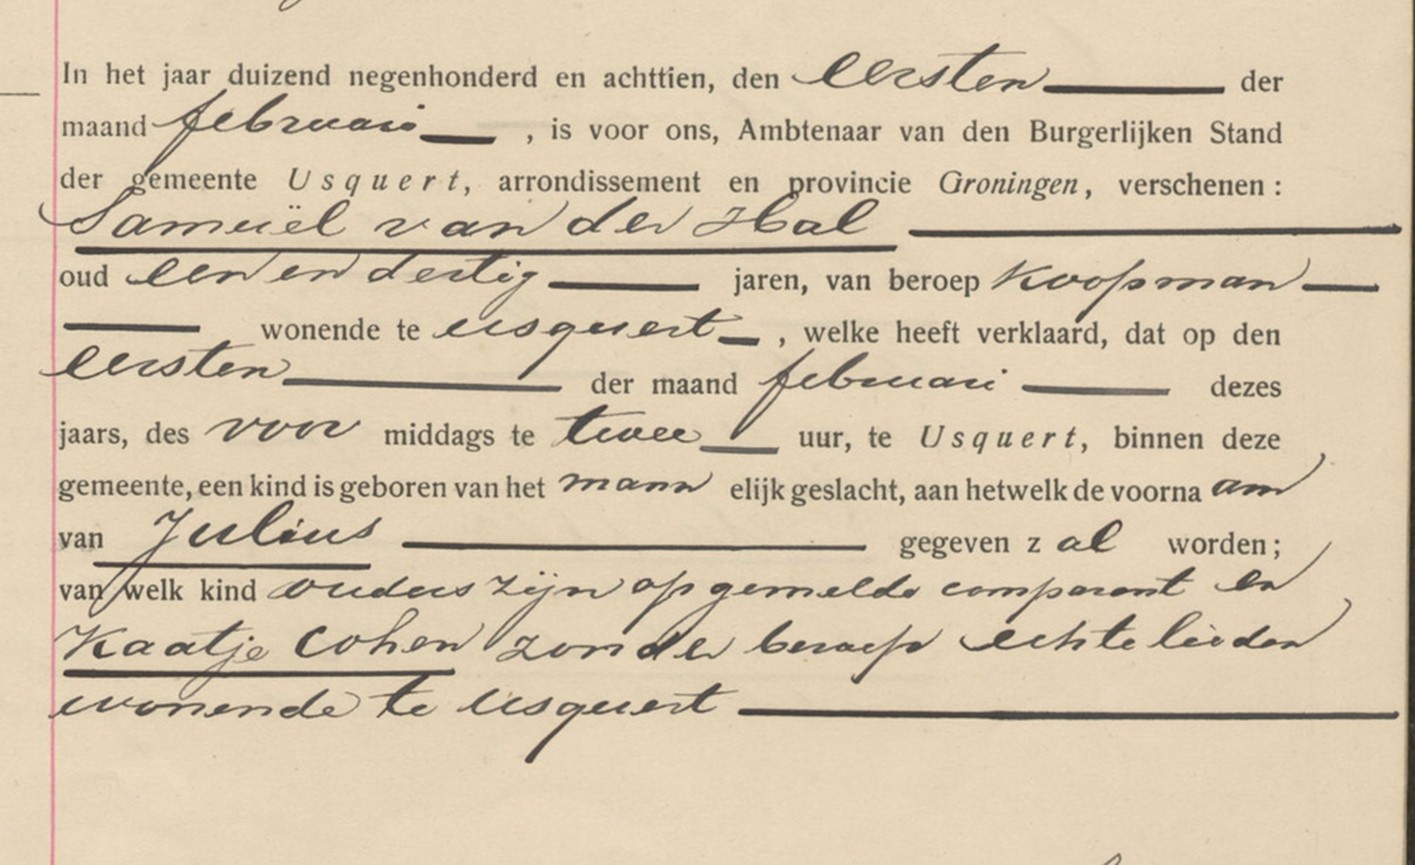 In het jaar duizend negenhonderd en achttien, den eersten der
maand februari , is voor ons, Ambtenaar van den Burgerlijken Stand
der gemeente Usquert, arrondissement en provincie Groningen, verschenen :
Samuël van der Hal
oud een en dertig jaren, van beroep koopman
wonende te Usquert , welke heeft verklaard, dat op den
eersten der maand februari dezes
jaars, des voor middags te twee uur, te Usquert, binnen deze
gemeente, een kind is geboren van het mann elijk geslacht, aan hetwelk de voorna am
van Julius gegeven z al worden ;
van welk kind ouders zijn opgemelde comparant en
Kaatje Cohen zonder beroep echtelieden
wonende te Usquert